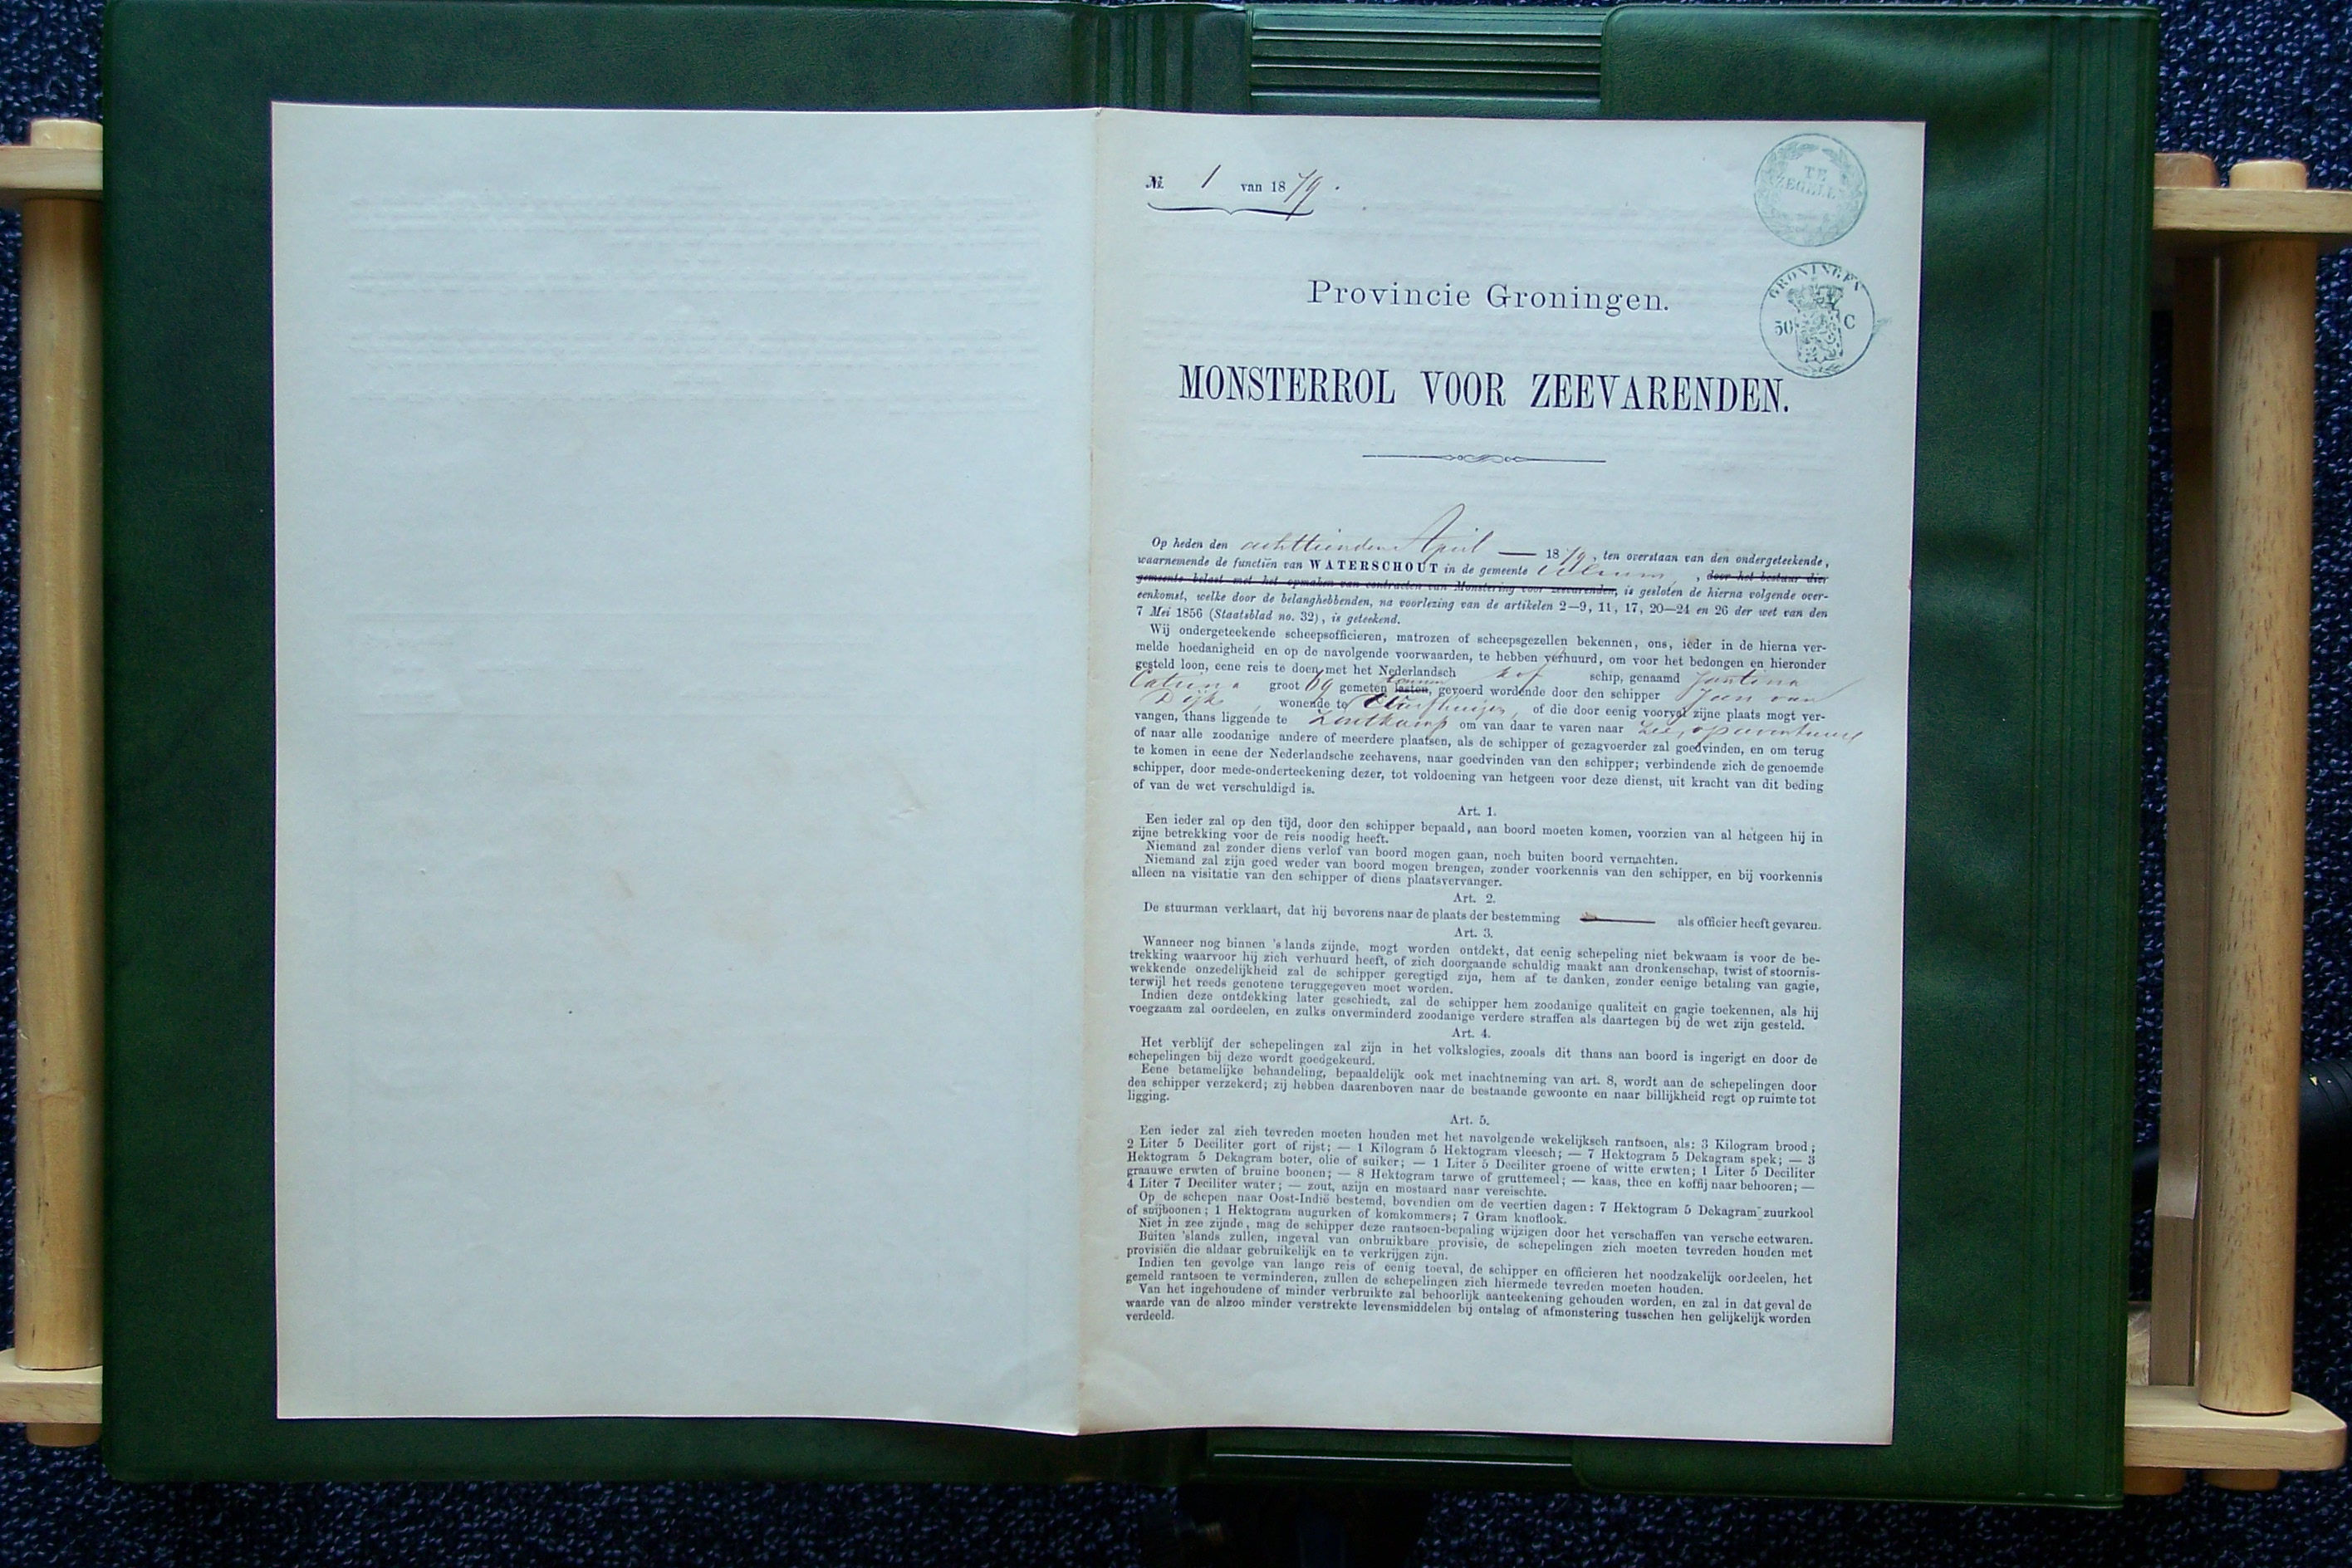 №. 1 van 1879.
TE ZEGELEN
GRONINGEN
50 C
Provincie Groningen.
MONSTERROL VOOR ZEEVARENDEN.
Op heden den achttienden April — 1879, ten overstaan van den ondergeteekende,
waarnemende de functiën van WATERSCHOUT in de gemeente Ulrum, , door het bestuur dier
gemeente belast met het opmaken van contracten van Monstering voor zeevarenden, is gesloten de hierna volgende over-
eenkomst, welke door de belanghebbenden, na voorlezing van de artikelen 2—9, 11, 17, 20—24 en 26 der wet van den
7 Mei 1856 (Staatsblad no. 32), is geteekend.
Wij ondergeteekende scheepsofficieren, matrozen of scheepsgezellen bekennen, ons, ieder in de hierna ver-
melde hoedanigheid en op de navolgende voorwaarden, te hebben verhuurd, om voor het bedongen en hieronder
gesteld loon, eene reis te doen met het Nederlandsch kof schip, genaamd Jantina
Catrina groot 69 gemeten lasten, tonnen gevoerd wordende door den schipper Jan van
Dijk, wonende te , of die door eenig voorval zijne plaats mogt ver-
vangen, thans liggende te Zoutkamp om van daar te varen naar Zee, op aventuur
of naar alle zoodanige andere of meerdere plaatsen, als de schipper of gezagvoerder zal goedvinden, en om terug
te komen in eene der Nederlandsche zeehavens, naar goedvinden van den schipper; verbindende zich de genoemde
schipper, door mede-onderteekening dezer, tot voldoening van hetgeen voor deze dienst, uit kracht van dit beding
of van de wet verschuldigd is.
Art. 1.
Een ieder zal op den tijd, door den schipper bepaald, aan boord moeten komen, voorzien van al hetgeen hij in
zijne betrekking voor de reis noodig heeft.
Niemand zal zonder diens verlof van boord mogen gaan, noch buiten boord vernachten.
Niemand zal zijn goed weder van boord mogen brengen, zonder voorkennis van den schipper, en bij voorkennis
alleen na visitatie van den schipper of diens plaatsvervanger.
Art. 2.
De stuurman verklaart, dat hij bevorens naar de plaats der bestemming — als officier heeft gevaren.
Art. 3.
Wanneer nog binnen 's lands zijnde, mogt worden ontdekt, dat eenig schepeling niet bekwaam is voor de be-
trekking waarvoor hij zich verhuurd heeft, of zich doorgaande schuldig maakt aan dronkenschap, twist of stoornis-
wekkende onzedelijkheid zal de schipper geregtigd zijn, hem af te danken, zonder eenige betaling van gagie,
terwijl het reeds genotene teruggegeven moet worden.
Indien deze ontdekking later geschiedt, zal de schipper hem zoodanige qualiteit en gagie toekennen, als hij
voegzaam zal oordeelen, en zulks onverminderd zoodanige verdere straffen als daartegen bij de wet zijn gesteld.
Art. 4.
Het verblijf der schepelingen zal zijn in het volkslogies, zooals dit thans aan boord is ingerigt en door de
schepelingen bij deze wordt goedgekeurd.
Eene betamelijke behandeling, bepaaldelijk ook met inachtneming van art. 8, wordt aan de schepelingen door
den schipper verzekerd; zij hebben daarenboven naar de bestaande gewoonte en naar billijkheid regt op ruimte tot
ligging.
Art. 5.
Een ieder zal zich tevreden moeten houden met het navolgende wekelijksch rantsoen, als: 3 Kilogram brood;
2 Liter 5 Deciliter gort of rijst; — 1 Kilogram 5 Hektogram vleesch; — 7 Hektogram 5 Dekagram spek; — 3
Hektogram 5 Dekagram boter, olie of suiker; — 1 Liter 5 Deciliter groene of witte erwten; 1 Liter 5 Deciliter
graauwe erwten of bruine boonen; — 8 Hektogram tarwe of gruttemeel; — kaas, thee en koffij naar behooren; —
4 Liter 7 Deciliter water; — zout, azijn en mostaard naar vereischte.
Op de schepen naar Oost-Indië bestemd, bovendien om de veertien dagen: 7 Hektogram 5 Dekagram zuurkool
of snijboonen; 1 Hektogram augurken of komkommers; 7 Gram knoflook.
Niet in zee zijnde, mag de schipper deze rantsoen-bepaling wijzigen door het verschaffen van versche eetwaren.
Buiten 'slands zullen, ingeval van onbruikbare provisie, de schepelingen zich moeten tevreden houden met
provisiën die aldaar gebruikelijk en te verkrijgen zijn.
Indien ten gevolge van lange reis of eenig toeval, de schipper en officieren het noodzakelijk oordeelen, het
gemeld rantsoen te verminderen, zullen de schepelingen zich hiermede tevreden moeten houden.
Van het ingehoudene of minder verbruikte zal behoorlijk aanteekening gehouden worden, en zal in dat geval de
waarde van de alzoo minder verstrekte levensmiddelen bij ontslag of afmonstering tusschen hen gelijkelijk worden
verdeeld.